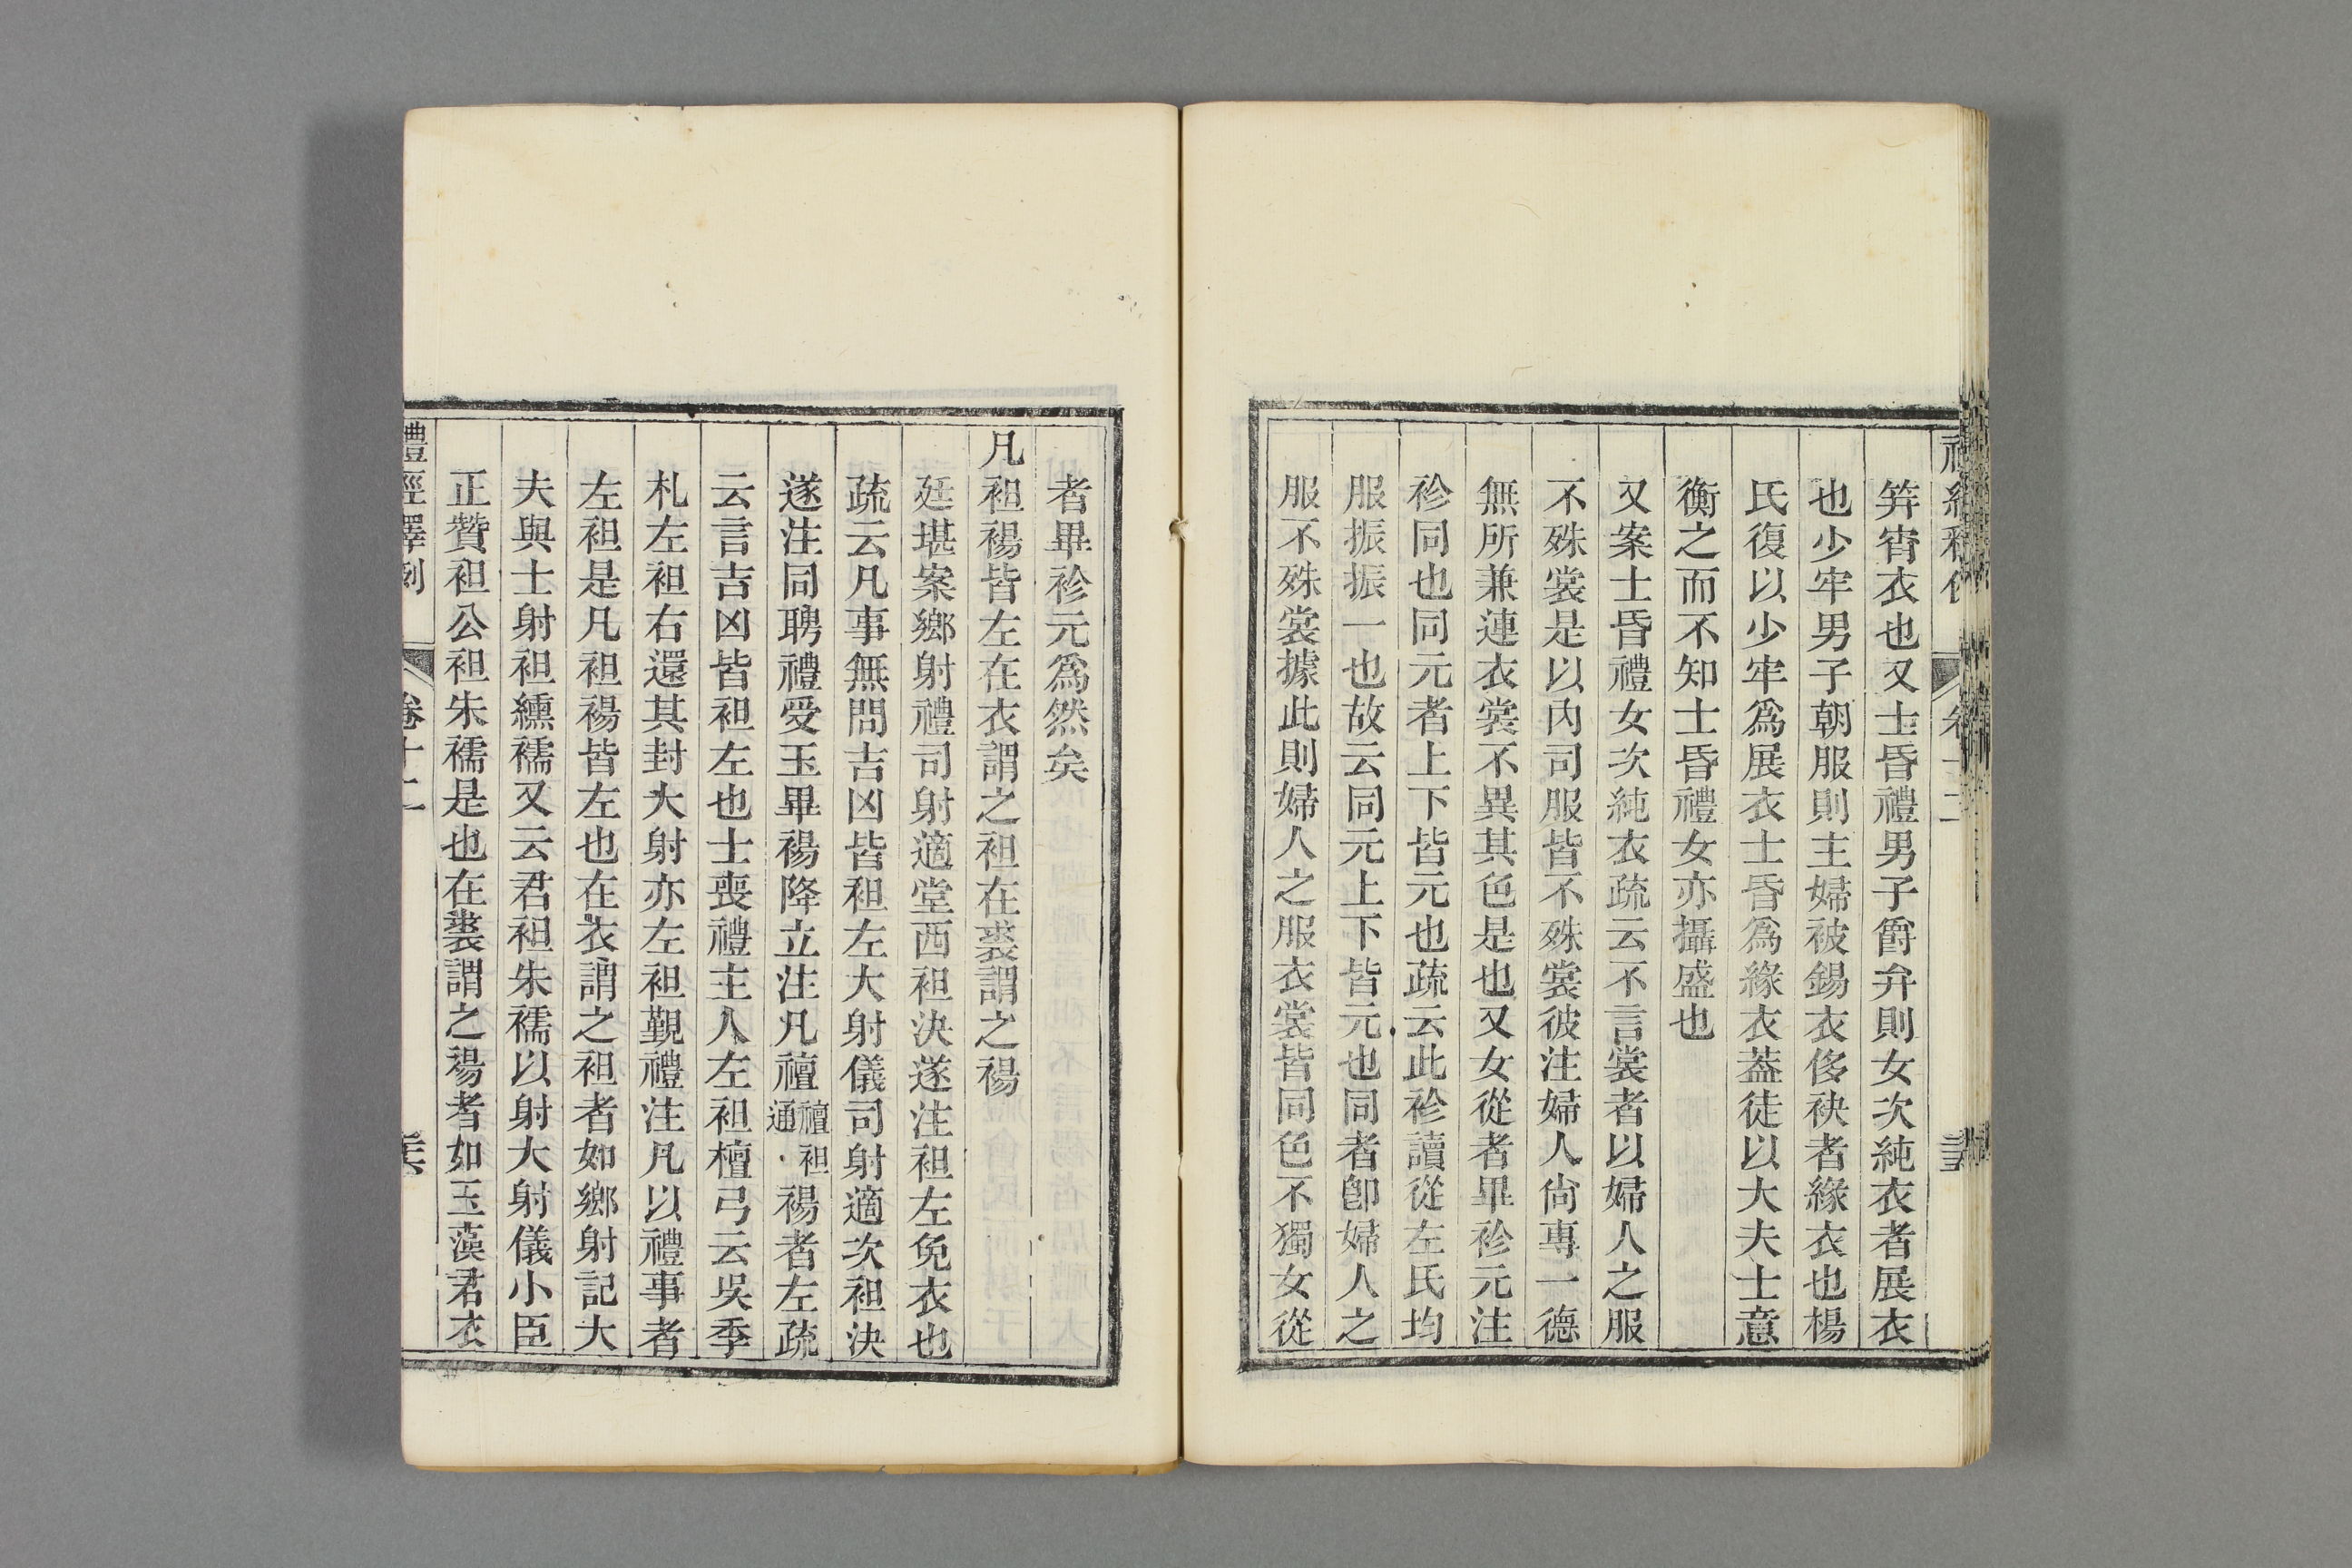 笄宵衣也又士昏禮男子爵弁則女次純衣者展衣
也少牢男子朝服則主婦被錫衣侈袂者緣衣也楊
氏復以少牢爲展衣士昏爲緣衣葢徒以大夫士意
衡之而不知士昏禮女亦攝盛也
又案士昏禮女次純衣疏云不言裳者以婦人之服
不殊裳是以內司服皆不殊裳彼注婦人尙專一德
無所兼連衣裳不異其色是也又女從者畢袗元注
袗同也同元者上下皆元也疏云此袗讀從左氏均
服振振一也故云同元上下皆元也同者卽婦人之
服不殊裳據此則婦人之服衣裳皆同色不獨女從
者畢袗元爲然矣
凡袒裼皆左在衣謂之袒在裘謂之裼
廷堪案鄉射禮司射適堂西袒決遂注袒左免衣也
疏云凡事無問吉凶皆袒左大射儀司射適次袒決
遂注同聘禮受玉畢裼降立注凡襢襢袒通裼者左疏
云言吉凶皆袒左也士喪禮主人左袒檀弓云吳季
札左袒右還其封大射亦左袒覲禮注凡以禮事者
左袒是凡袒裼皆左也在衣謂之袒者如鄉射記大
夫與士射袒纁襦又云君袒朱襦以射大射儀小臣
正贊袒公袒朱襦是也在裘謂之裼者如玉藻君衣
禮經釋例
卷十二